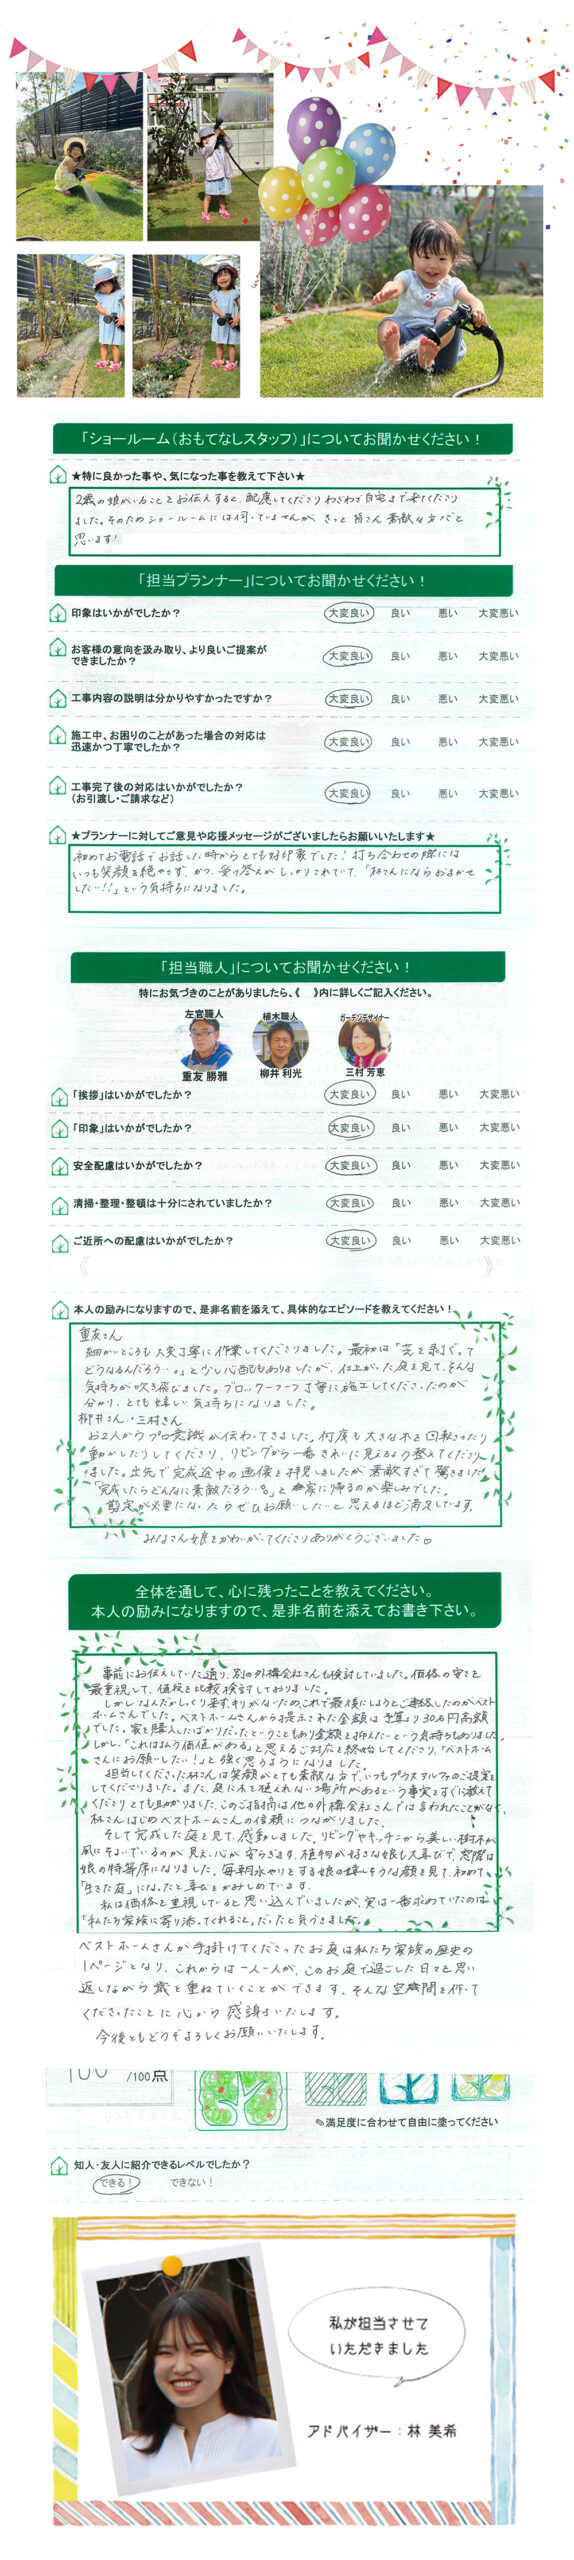 「ショールーム(おもてなしスタッフ)」についてお聞かせください!
★特に良かった事や、気になった事を教えて下さい★
2歳の娘がいることをお伝えすると、配慮してくださりわざわざ自宅まで来てくださり
ました。そのためショールームには伺っていませんが、きっと皆さん素敵な方だと
思います!
「担当プランナー」についてお聞かせください!
印象はいかがでしたか? 大変良い 良い 悪い 大変悪い
お客様の意向を汲み取り、より良いご提案が
できましたか? 大変良い 良い 悪い 大変悪い
工事内容の説明は分かりやすかったですか? 大変良い 良い 悪い 大変悪い
施工中、お困りのことがあった場合の対応は
迅速かつ丁寧でしたか? 大変良い 良い 悪い 大変悪い
工事完了後の対応はいかがでしたか?
(お引渡し・ご請求など) 大変良い 良い 悪い 大変悪い
★プランナーに対してご意見や応援メッセージがございましたらお願いいたします★
初めてお電話でお話した時からとても好印象でした!打ち合わせの際には
いつも笑顔を絶やさず、かつ、受け答えがしっかりされていて、「林さんにならおまかせ
したい!!」という気持ちになりました。
「担当職人」についてお聞かせください!
特にお気づきのことがありましたら、《 》内に詳しくご記入ください。
左官職人 植木職人 ガーデンデザイナー
重友 勝雅 柳井 利光 三村 芳恵
「挨拶」はいかがでしたか? 大変良い 良い 悪い 大変悪い
「印象」はいかがでしたか? 大変良い 良い 悪い 大変悪い
安全配慮はいかがでしたか? 大変良い 良い 悪い 大変悪い
清掃・整理・整頓は十分にされていましたか? 大変良い 良い 悪い 大変悪い
ご近所への配慮はいかがでしたか? 大変良い 良い 悪い 大変悪い
《 》
本人の励みになりますので、是非名前を添えて、具体的なエピソードを教えてください!
重友さん
細かいところも大変丁寧に作業してくださりました。最初は「芝を剥ぐって
どうなるんだろう…。」と少し心配もありましたが、仕上がった庭を見て、そんな
気持ちが吹き飛びました。ブロック一つ一つ丁寧に施工してくださったのが
分かり、とても嬉しい気持ちになりました。
柳井さん・三村さん
お2人からプロ意識が伝わってきました。何度も大きな木を回転させたり
動かしたりしてくださり、リビングから一番きれいに見えるよう整えてくださり
ました。出先で完成途中の画像を拝見しましたが素敵すぎて驚きました。
「完成したらどんなに素敵だろう…」と家に帰るのが楽しみでした。
剪定が必要になったらぜひお願いしたいと思えるほど満足しています。
みなさん娘をかわいがってくださりありがとうございました♡
全体を通して、心に残ったことを教えてください。
本人の励みになりますので、是非名前を添えてお書き下さい。
事前にお伝えしていた通り、別の外構会社さんも検討していました。価格の安さを
最重視して、値段を比較検討しておりました。
しかしなんだかしっくり来ず、キリがないためこれで最後にしようとご連絡したのがベスト
ホームさんでした。ベストホームさんから提示された金額は予算より30万円高額
でした。家を購入したばかりだったということもあり金額を抑えたいという気持ちもありました。
しかし、「これは払う価値がある」と思えるご対応を終始してくださり、「ベストホーム
さんにお願いしたい!」と強く思うようになりました。
担当してくださった林さんは笑顔がとても素敵な方で、いつもプラスアルファのご提案を
してくださりました。また、庭に木を植えれない場所があるという事実をすぐに教えて
くださりとても助かりました。このご指摘は他の外構会社さんでは言われたことがなく、
林さんはじめベストホームさんの信頼につながりました。
そして完成した庭を見て、感動しました。リビングやキッチンから美しい樹木が
風にそよいでいるのが見え、心が安らぎます。植物が好きな娘も大喜びで、窓際は
娘の特等席になりました。毎朝水やりをする娘の嬉しそうな顔を見て、初めて
「生きた庭」になったと喜びをかみしめています。
私は価格を重視していると思い込んでいましたが、実は一番求めていたのは、
「私たち家族に寄り添ってくれること」だったと気づきました。
ベストホームさんが手掛けてくださったお庭は私たち家族の歴史の
1ページとなり、これからは一人一人が、このお庭で過ごした日々を思い
返しながら歳を重ねていくことができます。そんな空間を作って
くださったことに心から感謝いたします。
今後ともどうぞよろしくお願いいたします。
100 /100点
✎満足度に合わせて自由に塗ってください
知人・友人に紹介できるレベルでしたか?
できる! できない!
私が担当させて
いただきました
アドバイザー:林 美希